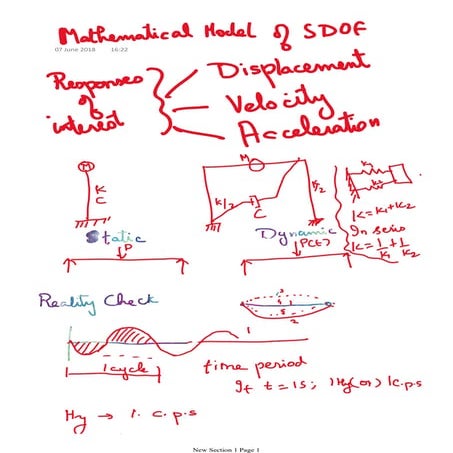 Mathematical Model of SDOF
07 June 2018 16:22
Responses of interest
Displacement
Velocity
Acceleration
M
K
C
M
K/2
C
K/2
K1
K2
K = K1+K2
In series
K = 1/K1 + 1/K2
Static
P
Dynamic
P(t)
Reality Check
3
1
2
1
1 cycle
time period
If t = 1s ; 1 Hy (or) 1 c.p.s
Hy → 1. c.p.s
New Section 1 Page 1